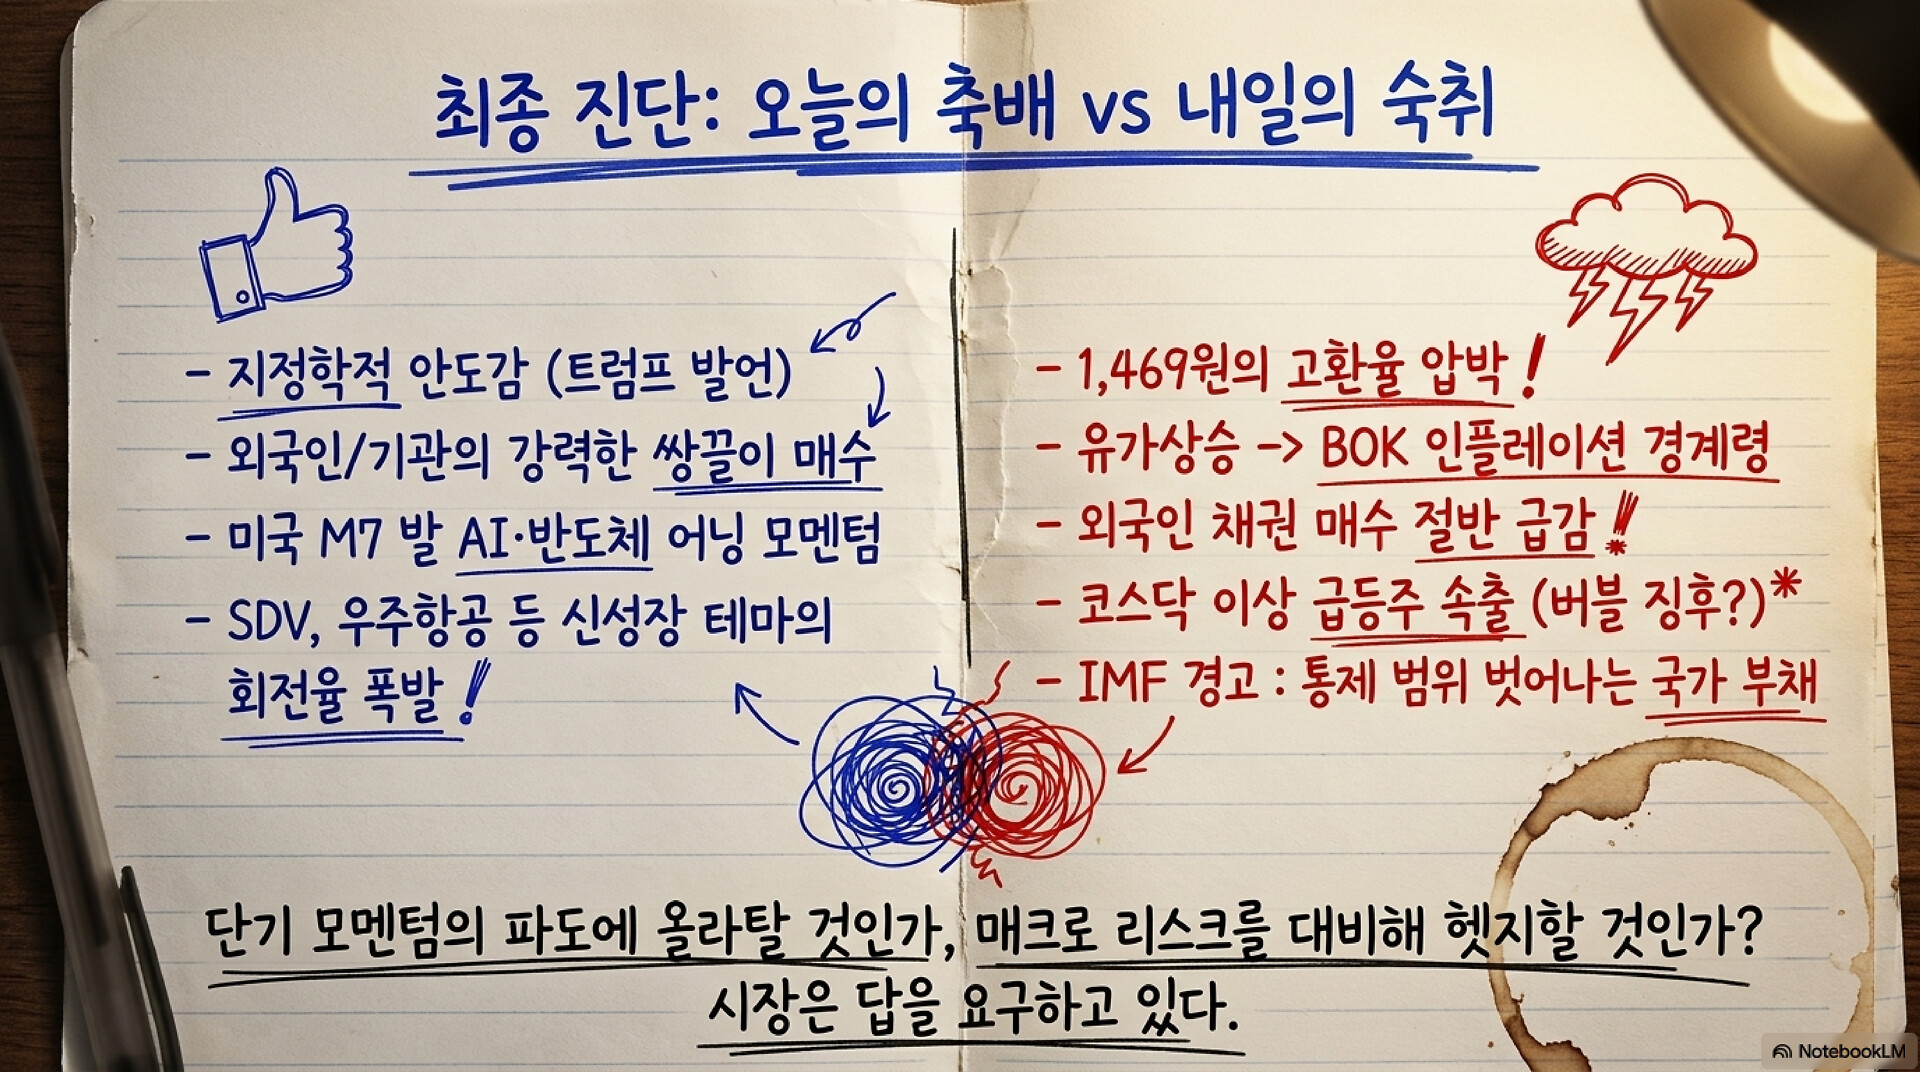 최종 진단: 오늘의 축배 vs 내일의 숙취
- 지정학적 안도감 (트럼프 발언)
- 외국인/기관의 강력한 쌍끌이 매수
- 미국 M7 발 AI·반도체 어닝 모멘텀
- SDV, 우주항공 등 신성장 테마의
회전율 폭발!
- 1,469원의 고환율 압박!
- 유가상승 -> BOK 인플레이션 경계령
- 외국인 채권 매수 절반 급감!*
- 코스닥 이상 급등주 속출 (버블 징후?)*
- IMF 경고 : 통제 범위 벗어나는 국가 부채
단기 모멘텀의 파도에 올라탈 것인가, 매크로 리스크를 대비해 헷지할 것인가?
시장은 답을 요구하고 있다.
NotebookLM